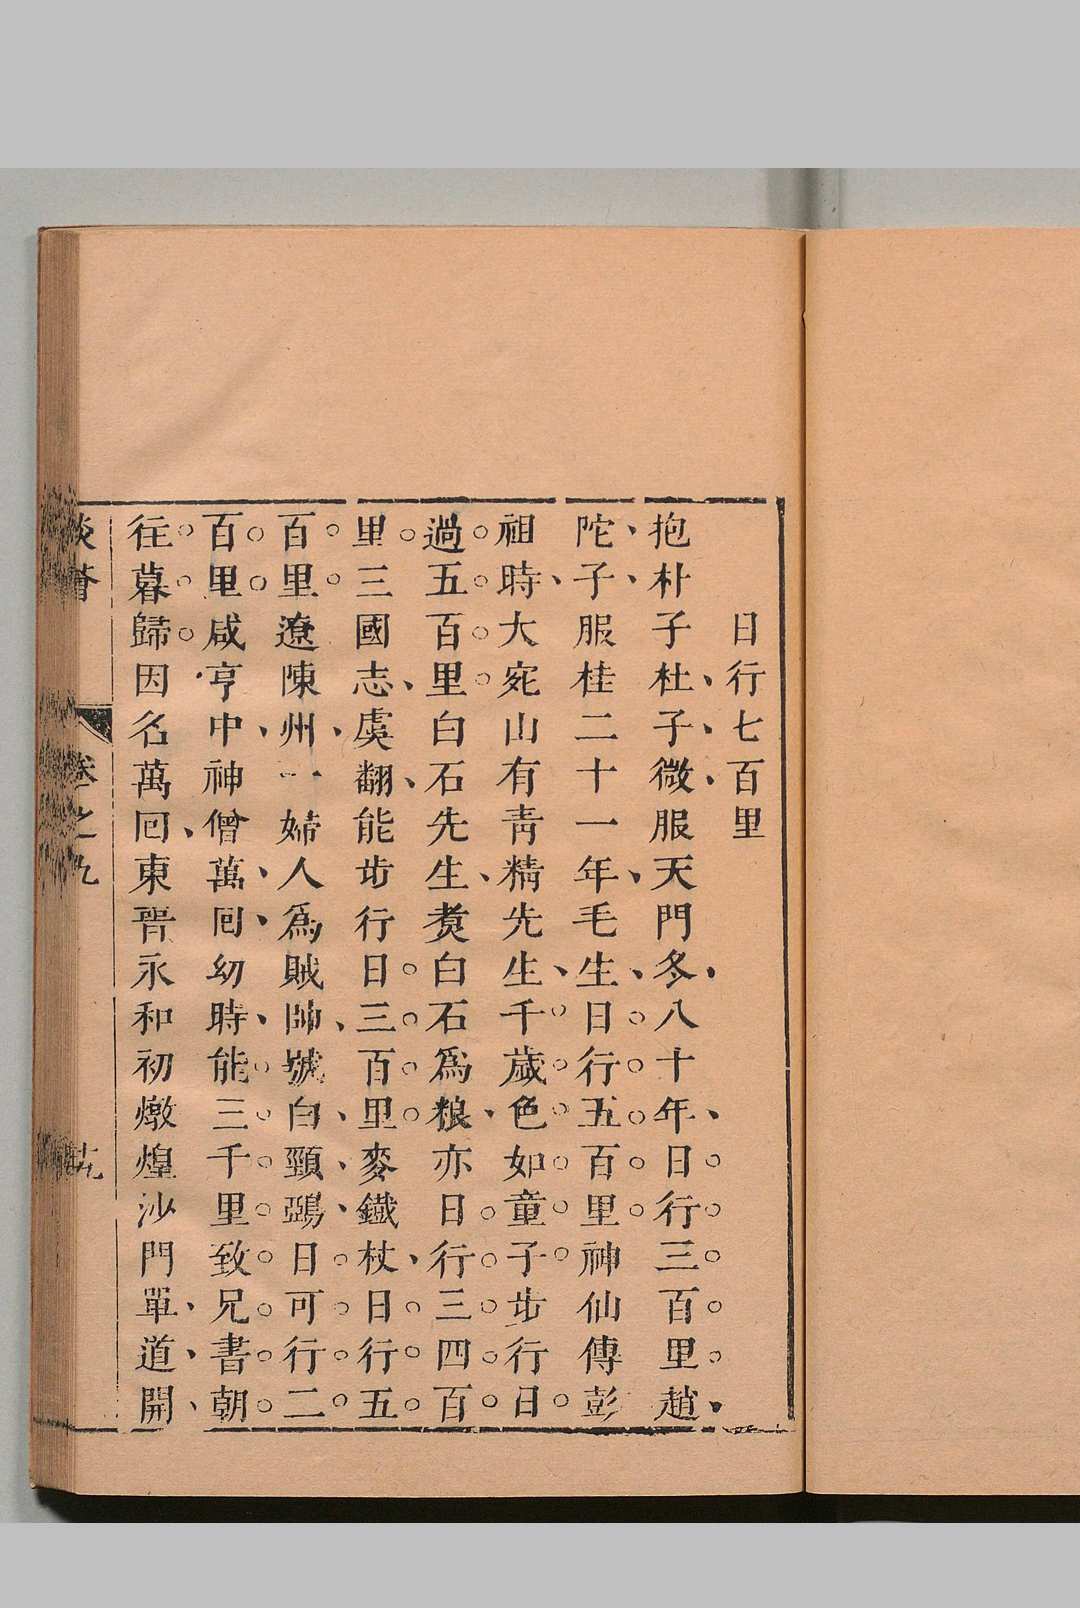 日行七百里
抱朴子杜子微服天門冬八十年日行三百里趙
陀子服桂二十一年毛生日行五百里神仙傳彭
祖時大宛山有青精先生千歲色如童子步行日
過五百里白石先生煑白石爲粮亦日行三四百
里三國志虞翻能步行日三百里麥鐵杖日行五
百里遼陳州一婦人爲賊帥號白頸鵶日可行二
百里咸亨中神僧萬囘幼時能三千里致兄書朝
往暮歸因名萬囘東晉永和初燉煌沙門單道開
談薈 卷之九 十九